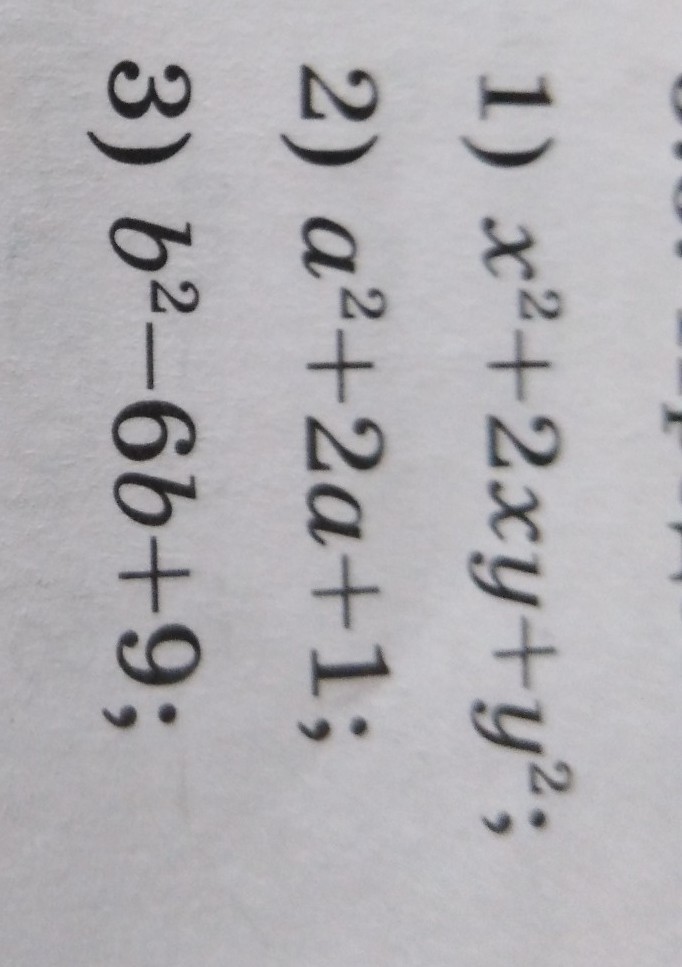 1) x²+2xy+y²;
2) a²+2a+1;
3) b²−6b+9;